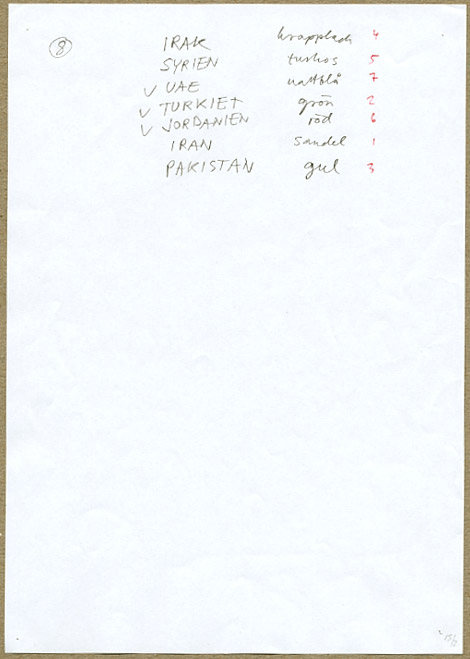 8 IRAK krapplack 4
SYRIEN turkos 5
✓ UAE nattblå 7
✓ TURKIET grön 2
✓ JORDANIEN röd 6
IRAN Sandel 1
PAKISTAN gul 3